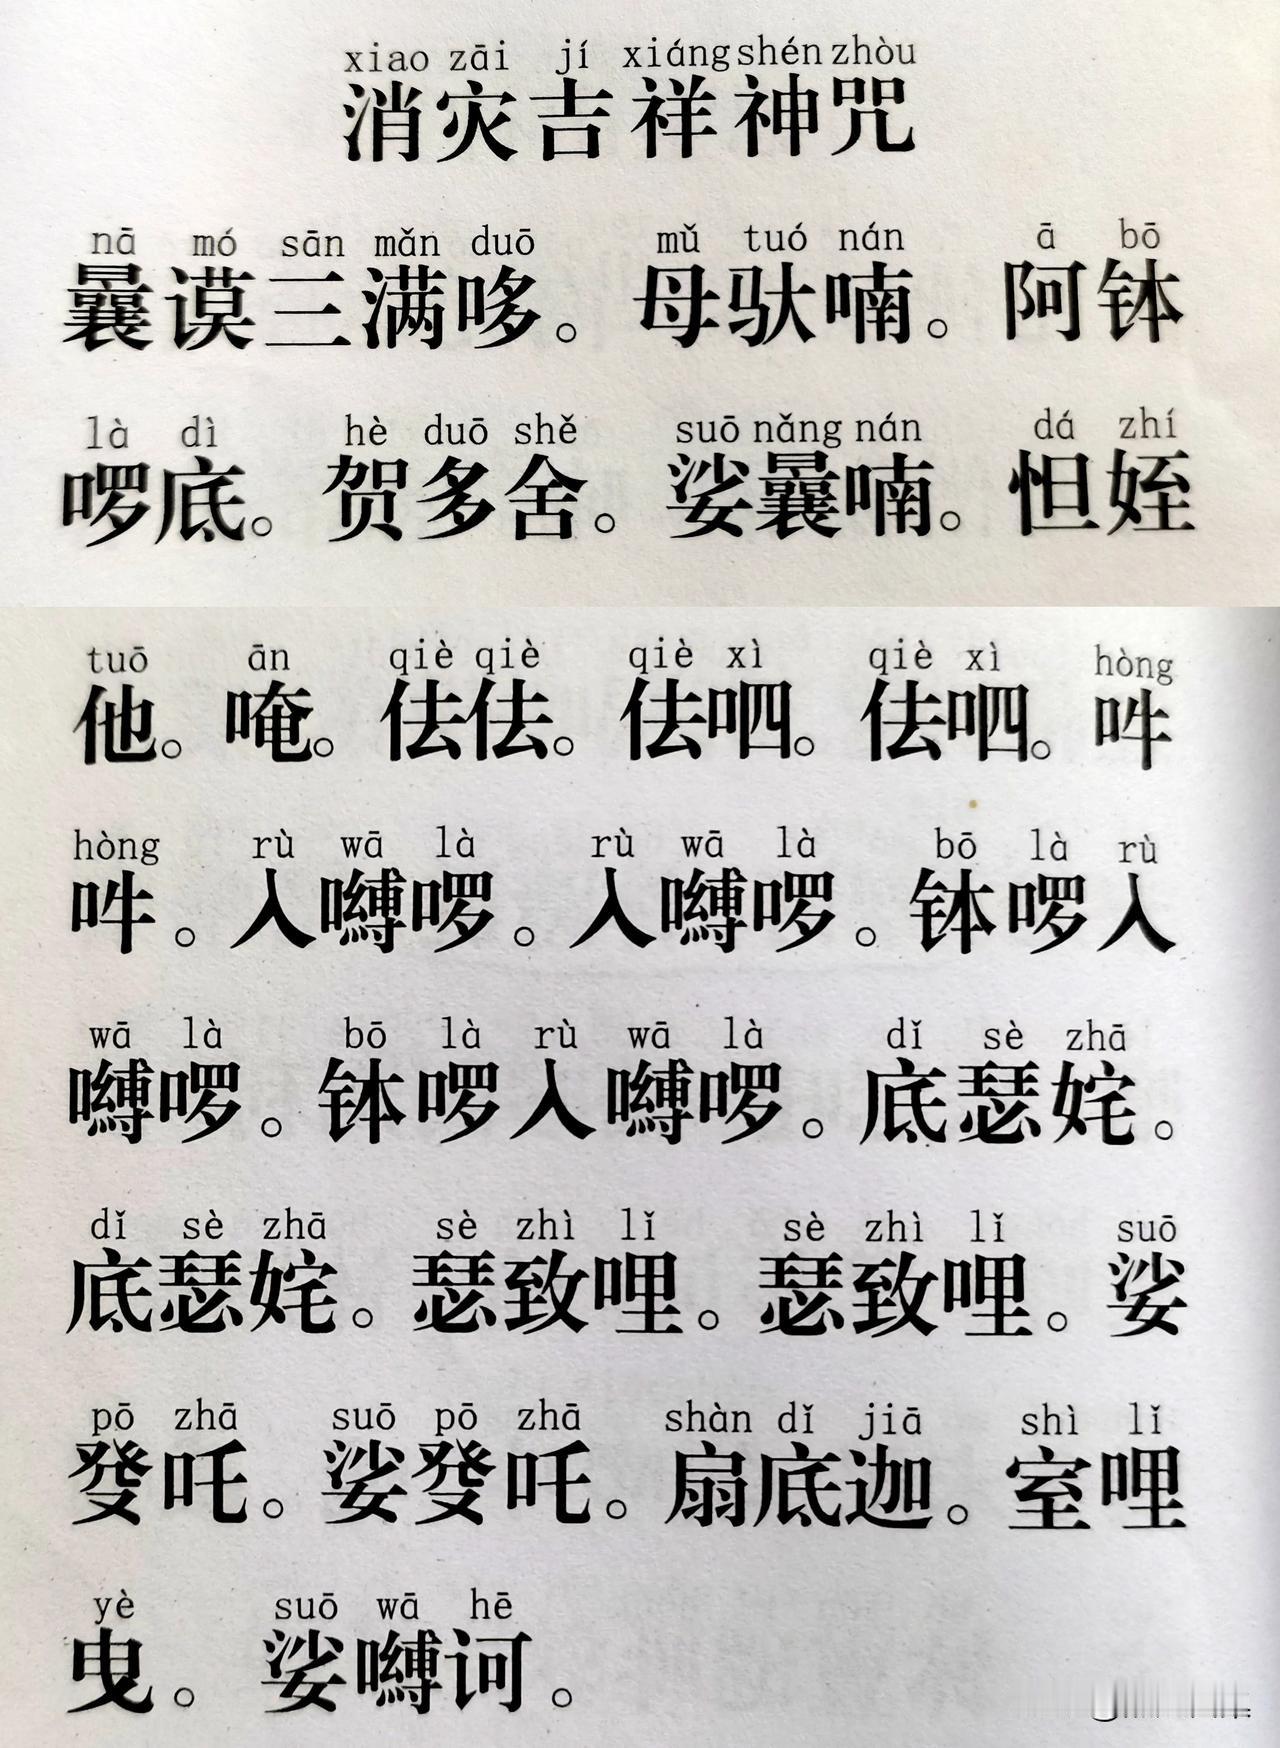 xiao zāi jí xiáng shén zhòu
消灾吉祥神咒
nā mó sān mǎn duō mǔ tuó nán ā bō
曩谟三满哆。母驮喃。阿钵
là dì hè duō shě suō nǎng nán dá zhí
啰底。贺多舍。娑曩喃。怛姪
tuō ān qiè qiè qiè xì qiè xì hòng
他。唵。佉佉。佉呬。佉呬。吽
hòng rù wā là rù wā là bō là rù
吽。入嚩啰。入嚩啰。钵啰入
wā là bō là rù wā là dǐ sè zhā
嚩啰。钵啰入嚩啰。底瑟姹。
dǐ sè zhā sè zhì lǐ sè zhì lǐ suō
底瑟姹。瑟致哩。瑟致哩。娑
pō zhā suō pō zhā shàn dǐ jiā shì lǐ
癹吒。娑癹吒。扇底迦。室哩
yè suō wā hē
曳。娑嚩诃。